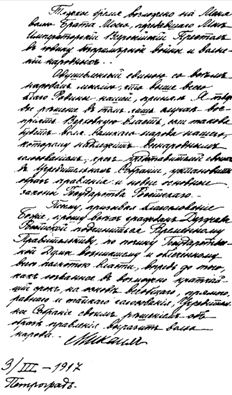 Тяжкое бремя возложено на Меня
волею Брата Моего, передавшаго Мнѣ
Императорскій Всероссійскій Престолъ
въ годину безпримѣрной войны и волне-
ній народныхъ.
Одушевленный единою со всѣмъ
народомъ мыслію, что выше всего
благо Родины нашей, принялъ Я твер-
дое рѣшеніе въ томъ лишь случаѣ вос-
принять Верховную власть, если такова
будетъ воля великаго народа нашего,
которому надлежитъ всенароднымъ
голосованіемъ, чрезъ представителей своихъ
въ Учредительномъ Собраніи, установить
образъ правленія и новые основные
законы Государства Россійскаго.
Посему, призывая благословеніе
Божіе, прошу всѣхъ гражданъ Державы
Россійской подчиниться Временному
Правительству, по почину Государствен-
ной Думы возникшему и облеченному
всею полнотою власти, впредь до того,
какъ созванное въ возможно кратчай-
шій срокъ, на основѣ всеобщаго, прямого,
равнаго и тайнаго голосованія, Учредитель-
ное Собраніе своимъ рѣшеніемъ объ
образѣ правленія выразитъ волю
народа.
Михаилъ
3/III - 1917
Петроградъ.